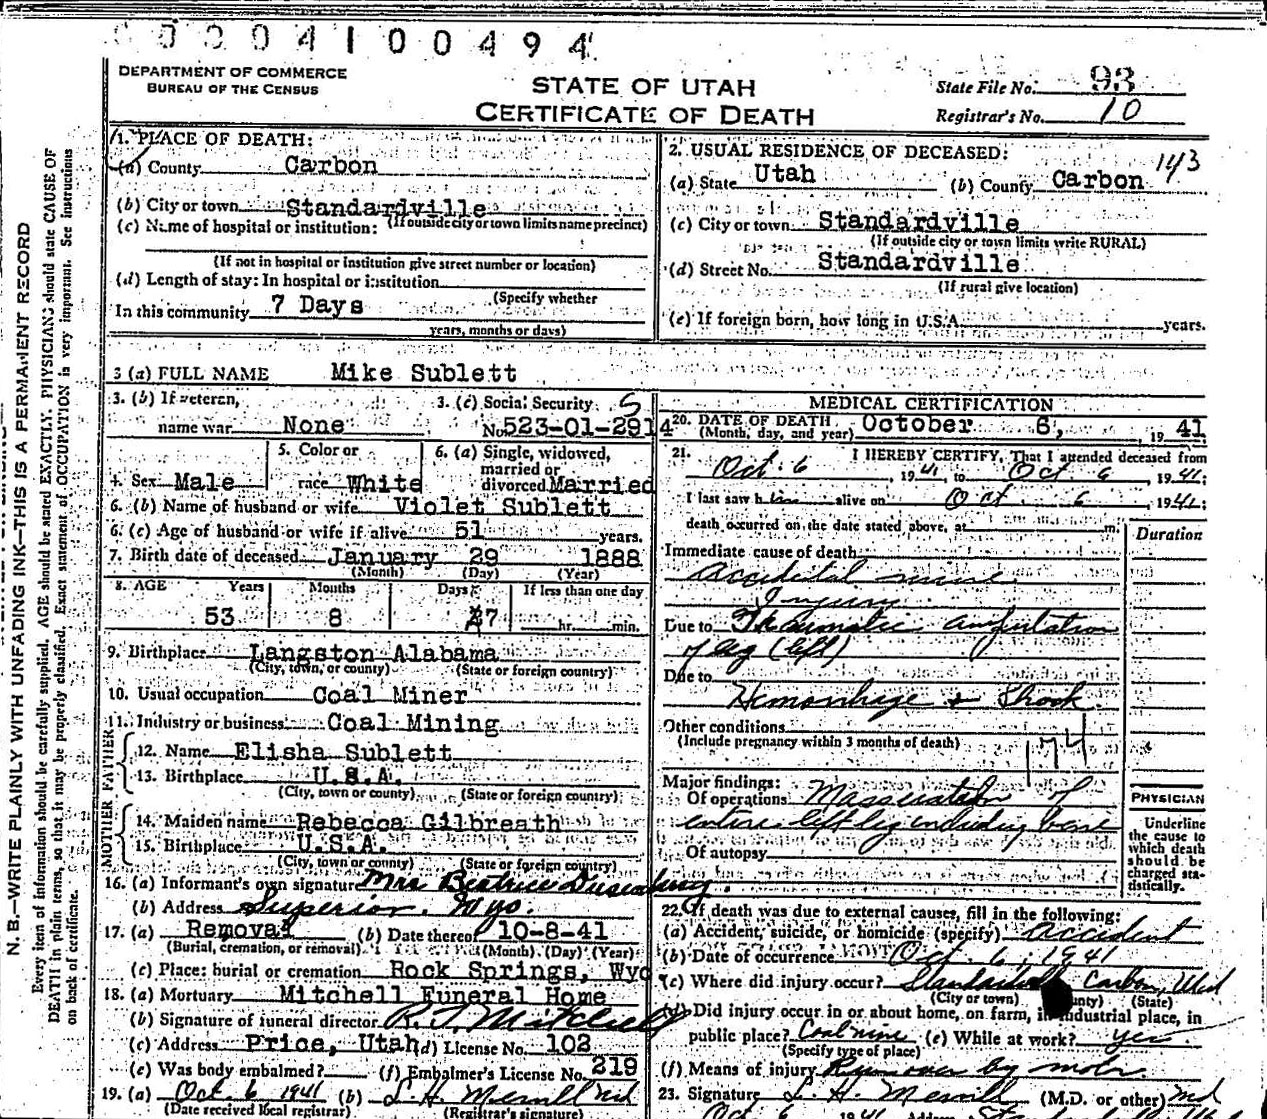 00004100494
DEPARTMENT OF COMMERCE
BUREAU OF THE CENSUS
STATE OF UTAH
CERTIFICATE OF DEATH
State File No. 93
Registrar's No. 10
1. PLACE OF DEATH:
(a) County Carbon
(b) City or town Standardville
(If outside city or town limits name precinct)
(c) Name of hospital or institution:
(If not in hospital or institution give street number or location)
(d) Length of stay: In hospital or institution
(Specify whether
In this community 7 Days
years, months or days)
2. USUAL RESIDENCE OF DECEASED: 143
(a) State Utah (b) County Carbon
(c) City or town Standardville
(If outside city or town limits write RURAL)
(d) Street No. Standardville
(If rural give location)
(e) If foreign born, how long in U.S.A. years.
3 (a) FULL NAME Mike Sublett
3. (b) If veteran, 3. (c) Social Security S
name war None No. 523-01-2914
4. Sex Male 5. Color or race White 6. (a) Single, widowed, married or divorced Married
6. (b) Name of husband or wife Violet Sublett
6. (c) Age of husband or wife if alive 51 years.
7. Birth date of deceased January 29 1888
(Month) (Day) (Year)
8. AGE Years Months Days If less than one day
53 8 7 hr. min.
9. Birthplace Langston Alabama
(City, town, or county) (State or foreign country)
10. Usual occupation Coal Miner
11. Industry or business Coal Mining
FATHER
12. Name Elisha Sublett
13. Birthplace U.S.A.
(City, town or county) (State or foreign country)
MOTHER
14. Maiden name Rebecca Gilbreath
15. Birthplace U.S.A.
(City, town or county) (State or foreign country)
16. (a) Informant's own signature Mrs Beatrice
(b) Address Superior, Wyo.
17. (a) Removal (b) Date thereof 10-8-41
(Burial, cremation, or removal) (Month) (Day) (Year)
(c) Place: burial or cremation Rock Springs, Wyo
18. (a) Mortuary Mitchell Funeral Home
(b) Signature of funeral director R. T. Mitchell
(c) Address Price, Utah (d) License No. 102
(e) Was body embalmed? (f) Embalmer's License No. 219
19. (a) Oct. 6 1941 (b) L. H. Merrill md
(Date received local registrar) (Registrar's signature)
MEDICAL CERTIFICATION
20. DATE OF DEATH October 6, 1941
(Month, day, and year)
21. I HEREBY CERTIFY, That I attended deceased from
Oct. 6, 1941, to Oct. 6, 1941;
I last saw him alive on Oct. 6, 1941;
death occurred on the date stated above, at m.
Duration
Immediate cause of death
Accidital mine
Injury
Due to Traumatic amputation
of leg (left)
Due to
Hemorrhage & Shock
Other conditions
(Include pregnancy within 3 months of death)
174
Major findings:
Of operations Masseration of
entire left leg including bone
Of autopsy
PHYSICIAN
Underline
the cause to
which death
should be
charged sta-
tistically.
22. If death was due to external causes, fill in the following:
(a) Accident, suicide, or homicide (specify) Accident
(b) Date of occurrence Oct. 6, 1941
(c) Where did injury occur? Standardville Carbon, Utah
(City or town) (State)
(d) Did injury occur in or about home, on farm, in industrial place, in
public place? Coal mine (e) While at work? yes
(Specify type of place)
(f) Means of injury Run over by motor
23. Signature L. H. Merrill (M.D. or other) md
Oct 6 1941 Address
N. B.—WRITE PLAINLY WITH UNFADING INK—THIS IS A PERMANENT RECORD
Every item of information should be carefully supplied. AGE should be stated EXACTLY. PHYSICIANS should state CAUSE OF
DEATH in plain terms, so that it may be properly classified. Exact statement of OCCUPATION is very important. See instructions
on back of certificate.